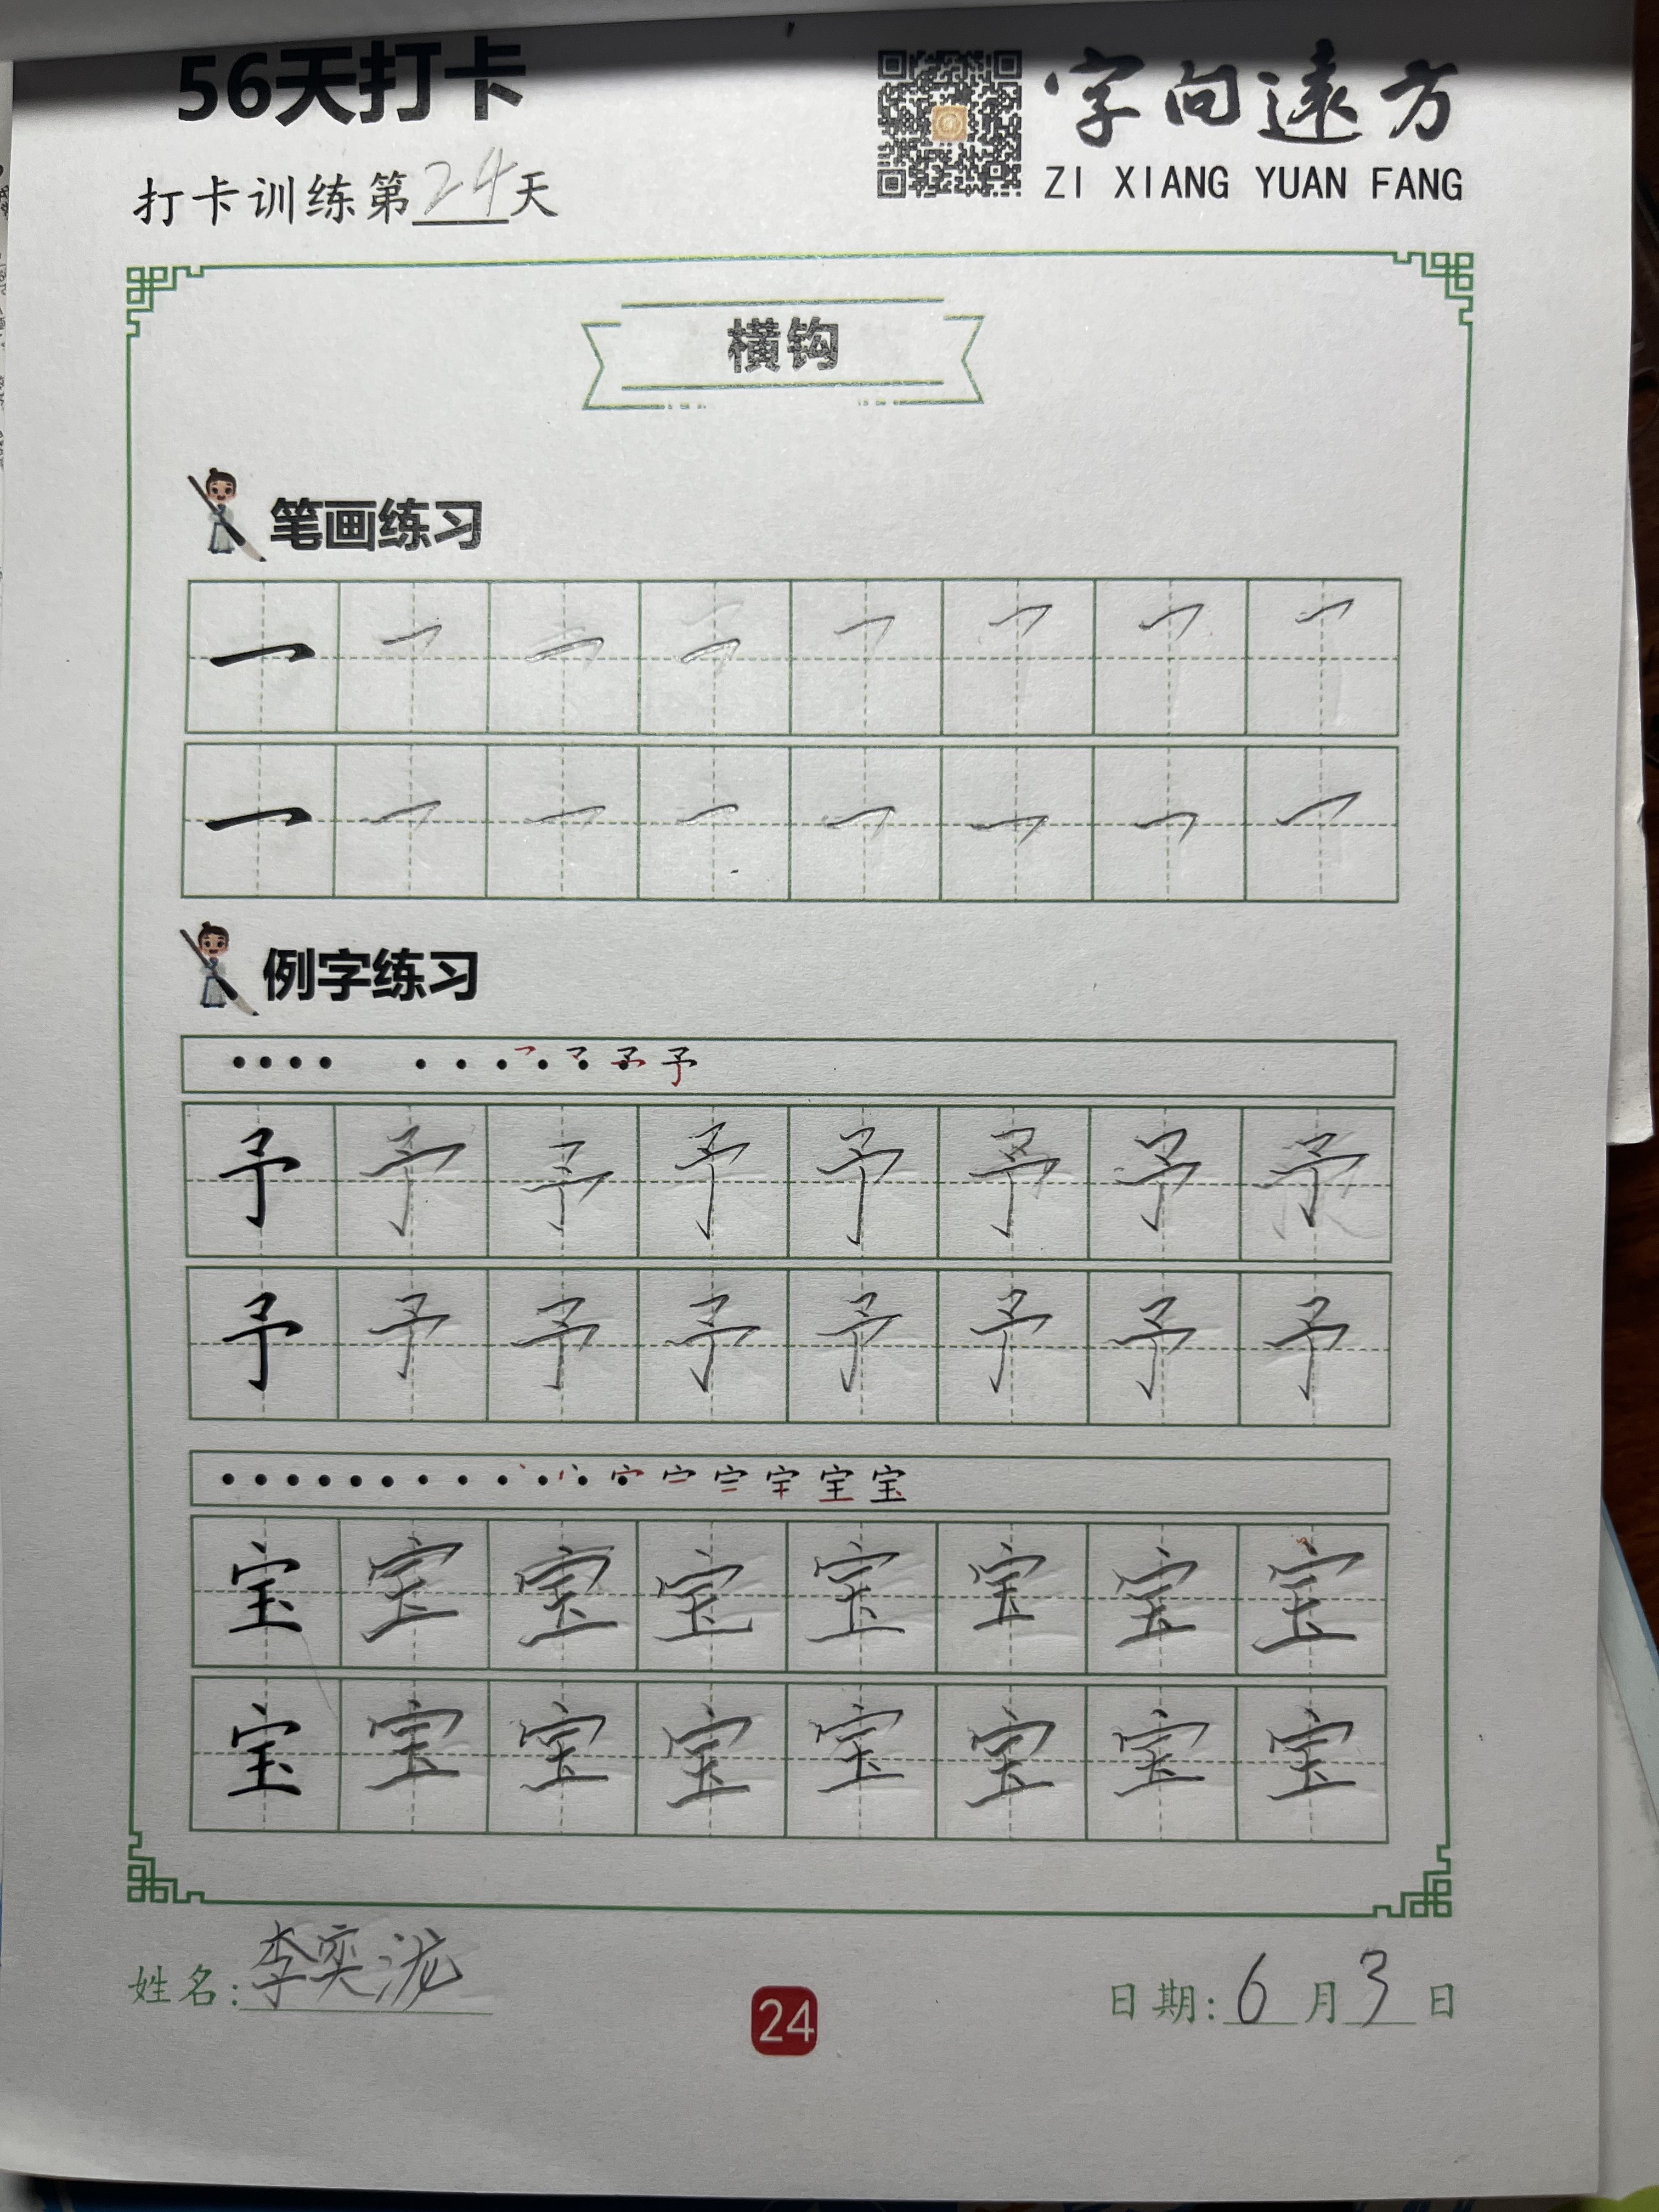 56天打卡
字向遠方
ZI XIANG YUAN FANG
打卡训练第24天
横钩
笔画练习
例字练习
予
予 予 予 予 予 予 予 予
予 予 予 予 予 予 予 予
宝
宝 宝 宝 宝 宝 宝 宝 宝
宝 宝 宝 宝 宝 宝 宝 宝
姓名:李奕泷
24
日期:6月3日